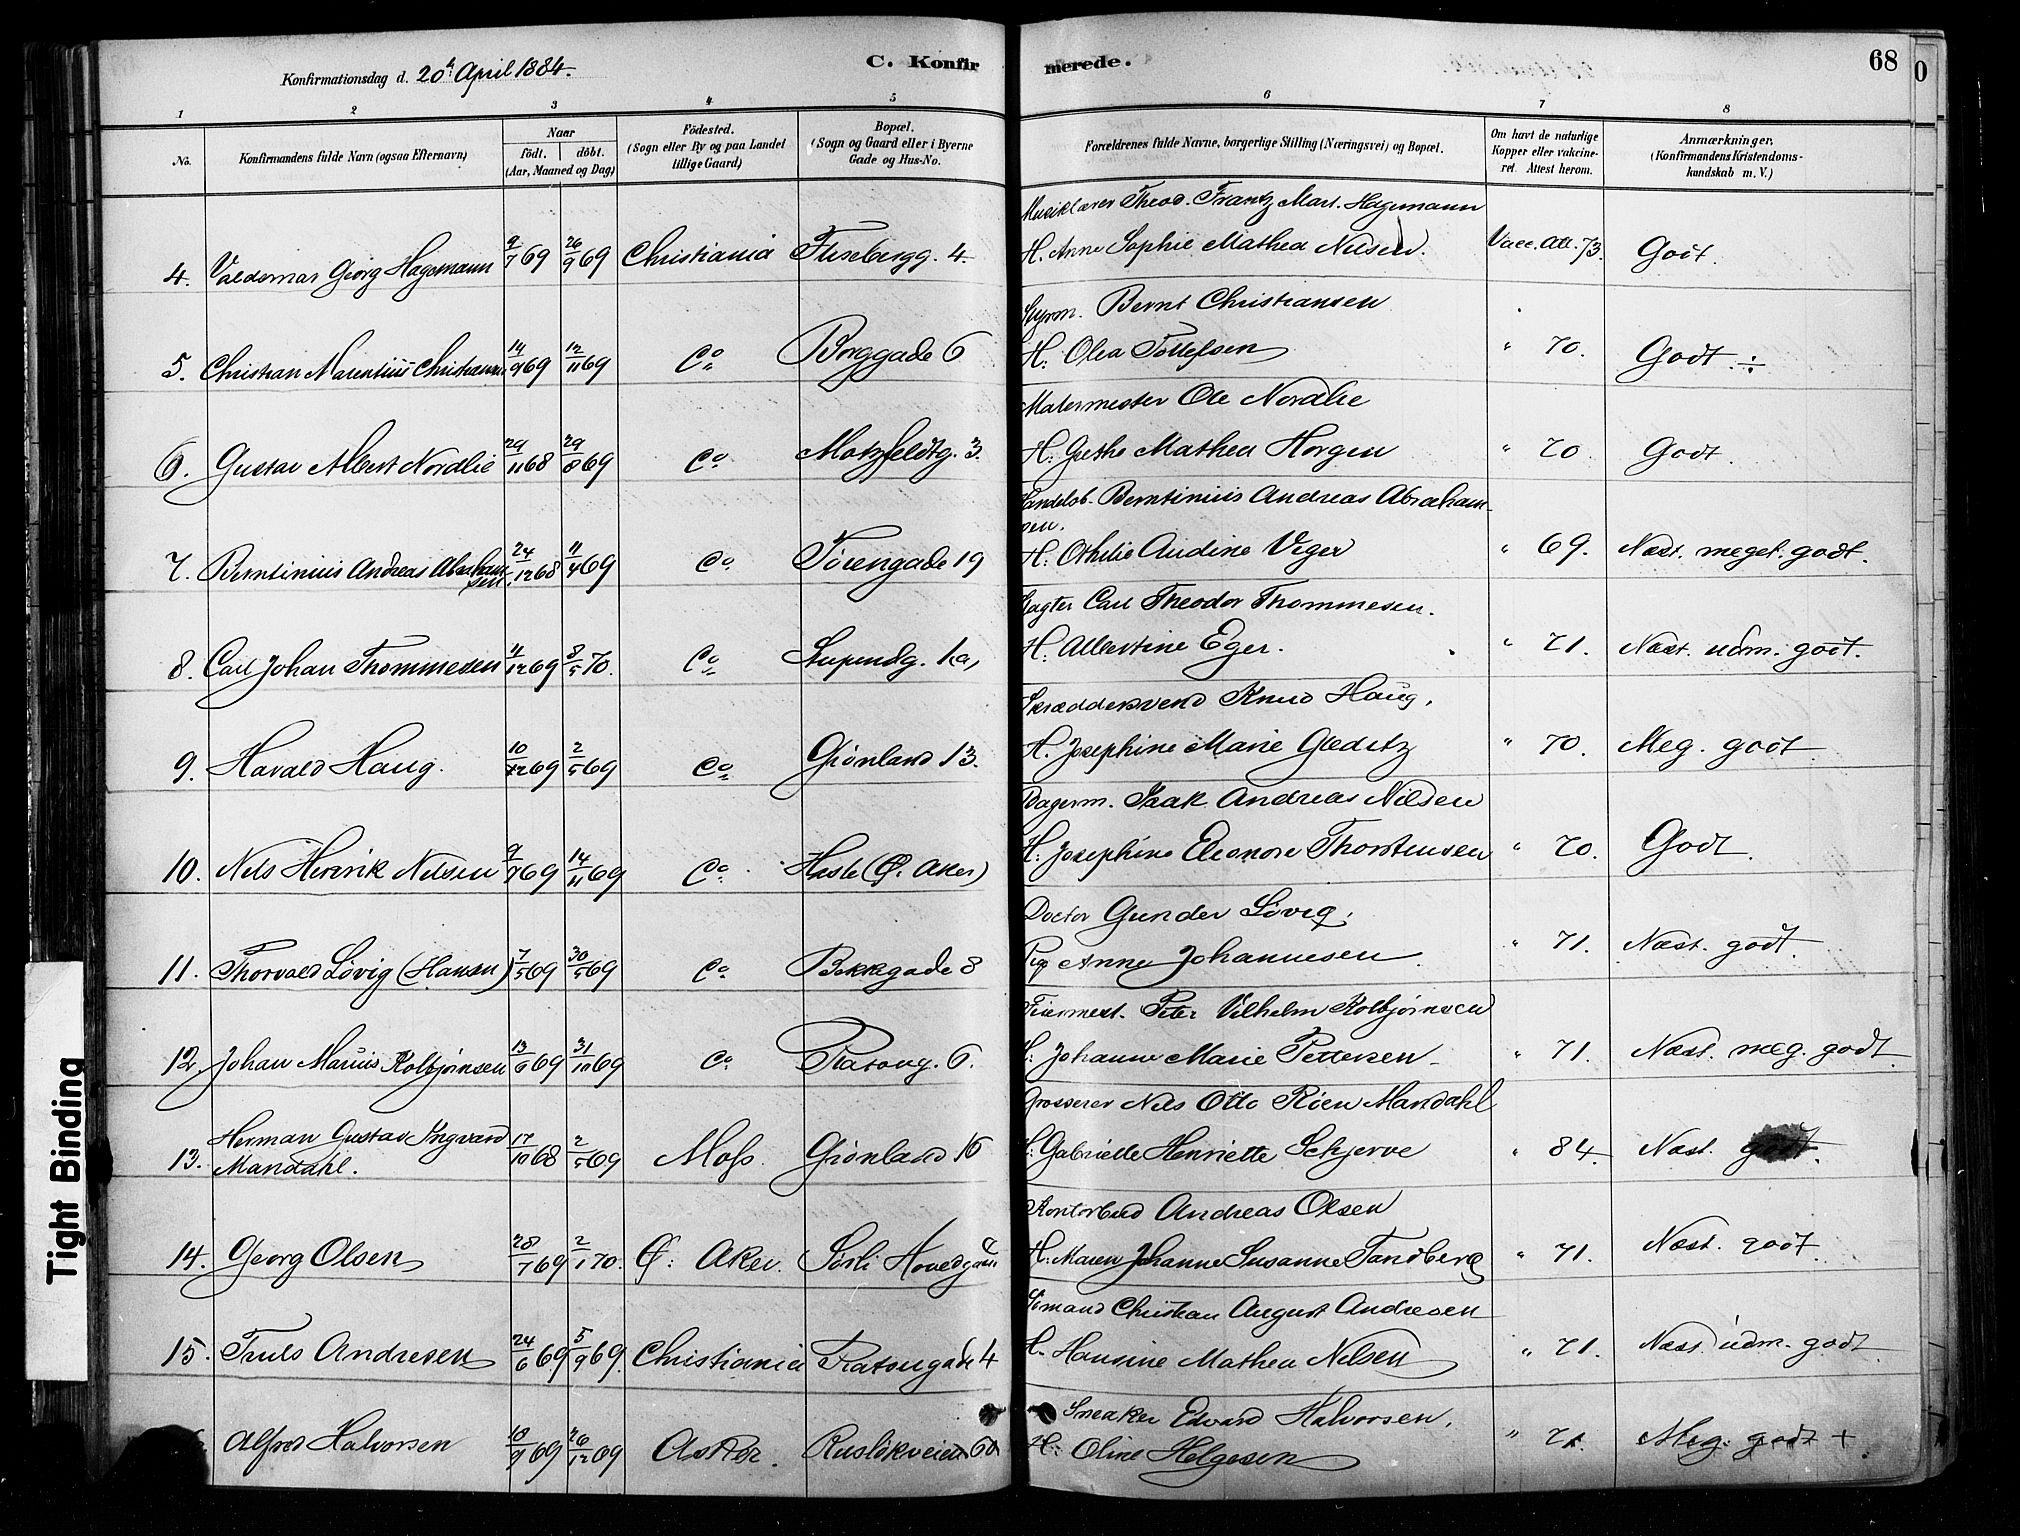 Konfirmationsdag d. 20de April 1884.
C. Konfir
merede.
68
1 2 3 4 5 6 7 8
No.
Konfirmandens fulde Navn (ogsaa Efternavn)
Naar
födt. döbt.
(Aar, Maaned og Dag)
Födested.
(Sogn eller By og paa Landet
tillige Gaard)
Bopæl.
(Sogn og Gaard eller i Byerne
Gade og Hus-No.
Forældrenes fulde Navne, borgerlige Stilling (Næringsvei) og Bopæl.
Om havt de naturlige
Kopper eller vakcine-
ret. Attest herom.
Anmærkninger.
(Konfirmandens Kristendoms-
kundskab m. V.)
Musiklærer Theod. Frantz Mart. Hagemann
4. Valdemar Georg Hagemann 9/7 69 26/9 69 Christiania Fliseberg. 4. H. Anne Sophie Mathea Nilsen. Vacc. Att. 73. Godt.
Styrm. Bernt Christiansen
5. Christian Marentius Christiansen 14/9 69 12/11 69 Co Borggade 6 H. Olea Tollefsen " 70. Godt ÷
Malermester Ole Nordlie
6. Gustav Albert Nordlie 29/11 68 29/8 69 Co Motzfeldtg. 3. H. Grethe Mathea Horgen " 70 Godt.
Handelsb. Berntinius Andreas Abraham-
sen.
7. Berntinius Andreas Abraham
sen. 24/12 68 11/4 69 Co Törengade 19 H. Othilie Andine Veger " 69. Næst. meget godt.
Slagter Carl Theodor Thommesen.
8. Carl Johan Thommesen 11/12 69 8/5 70. Co Stupendg. 1a, H. Albertine Eger. " 71. Næst. udm. godt.
Skræddersvend Knud Haug,
9. Harald Haug. 10/12 69 2/5 69 Co Grönland 13. H. Josephine Marie Gleditz " 70. Meg. godt
Bagerm. Isak Andreas Nilsen
10. Nils Henrik Nilsen 9/7 69 14/11 69 Co Hasle (Ø. Aker) H. Josephine Eleonore Thorstensen " 70. Godt.
Doctor Gunder Lövig,
11. Thorvald Lövig (Hansen) 7/5 69 30/5 69 Co Bekkgade 8 Pige Anne Johannesen " 71. Næst. godt.
Feiermest. Peter Vilhelm Kolbjørnsen
12. Johan Marius Kolbjørnsen 13/9 69 31/10 69 Co Platoug. 6. H. Johanne Marie Pettersen " 71. Næst. meg. godt
Grosserer Nils Otto Röen Mandahl
13. Herman Gustav Yngvard
Mandahl. 17/10 68 2/5 69 Moss. Grönland 16 H. Gabrielle Henriette Schjerve " 84. Næst. godt.
Kontorbud Andreas Olsen
14. Georg Olsen 28/7 69 2/1 70. Ø. Aker. Sörli Hovedgaard H. Maren Johanne Susanne Tandberg " 71. Næst. godt.
Sömand Christian August Andresen
15. Truls Andresen 24/6 69 5/9 69. Christiania Platougade 4 H. Hansine Mathea Nilsen " 71. Næst. udm. godt
Snedker Edvard Halvorsen.
Alfred Halvorsen 10/9 69 26/12 69 Asker. Ruslökveien 60 H. Oline Helgesen " 71. Meg. godt +
Tight Binding